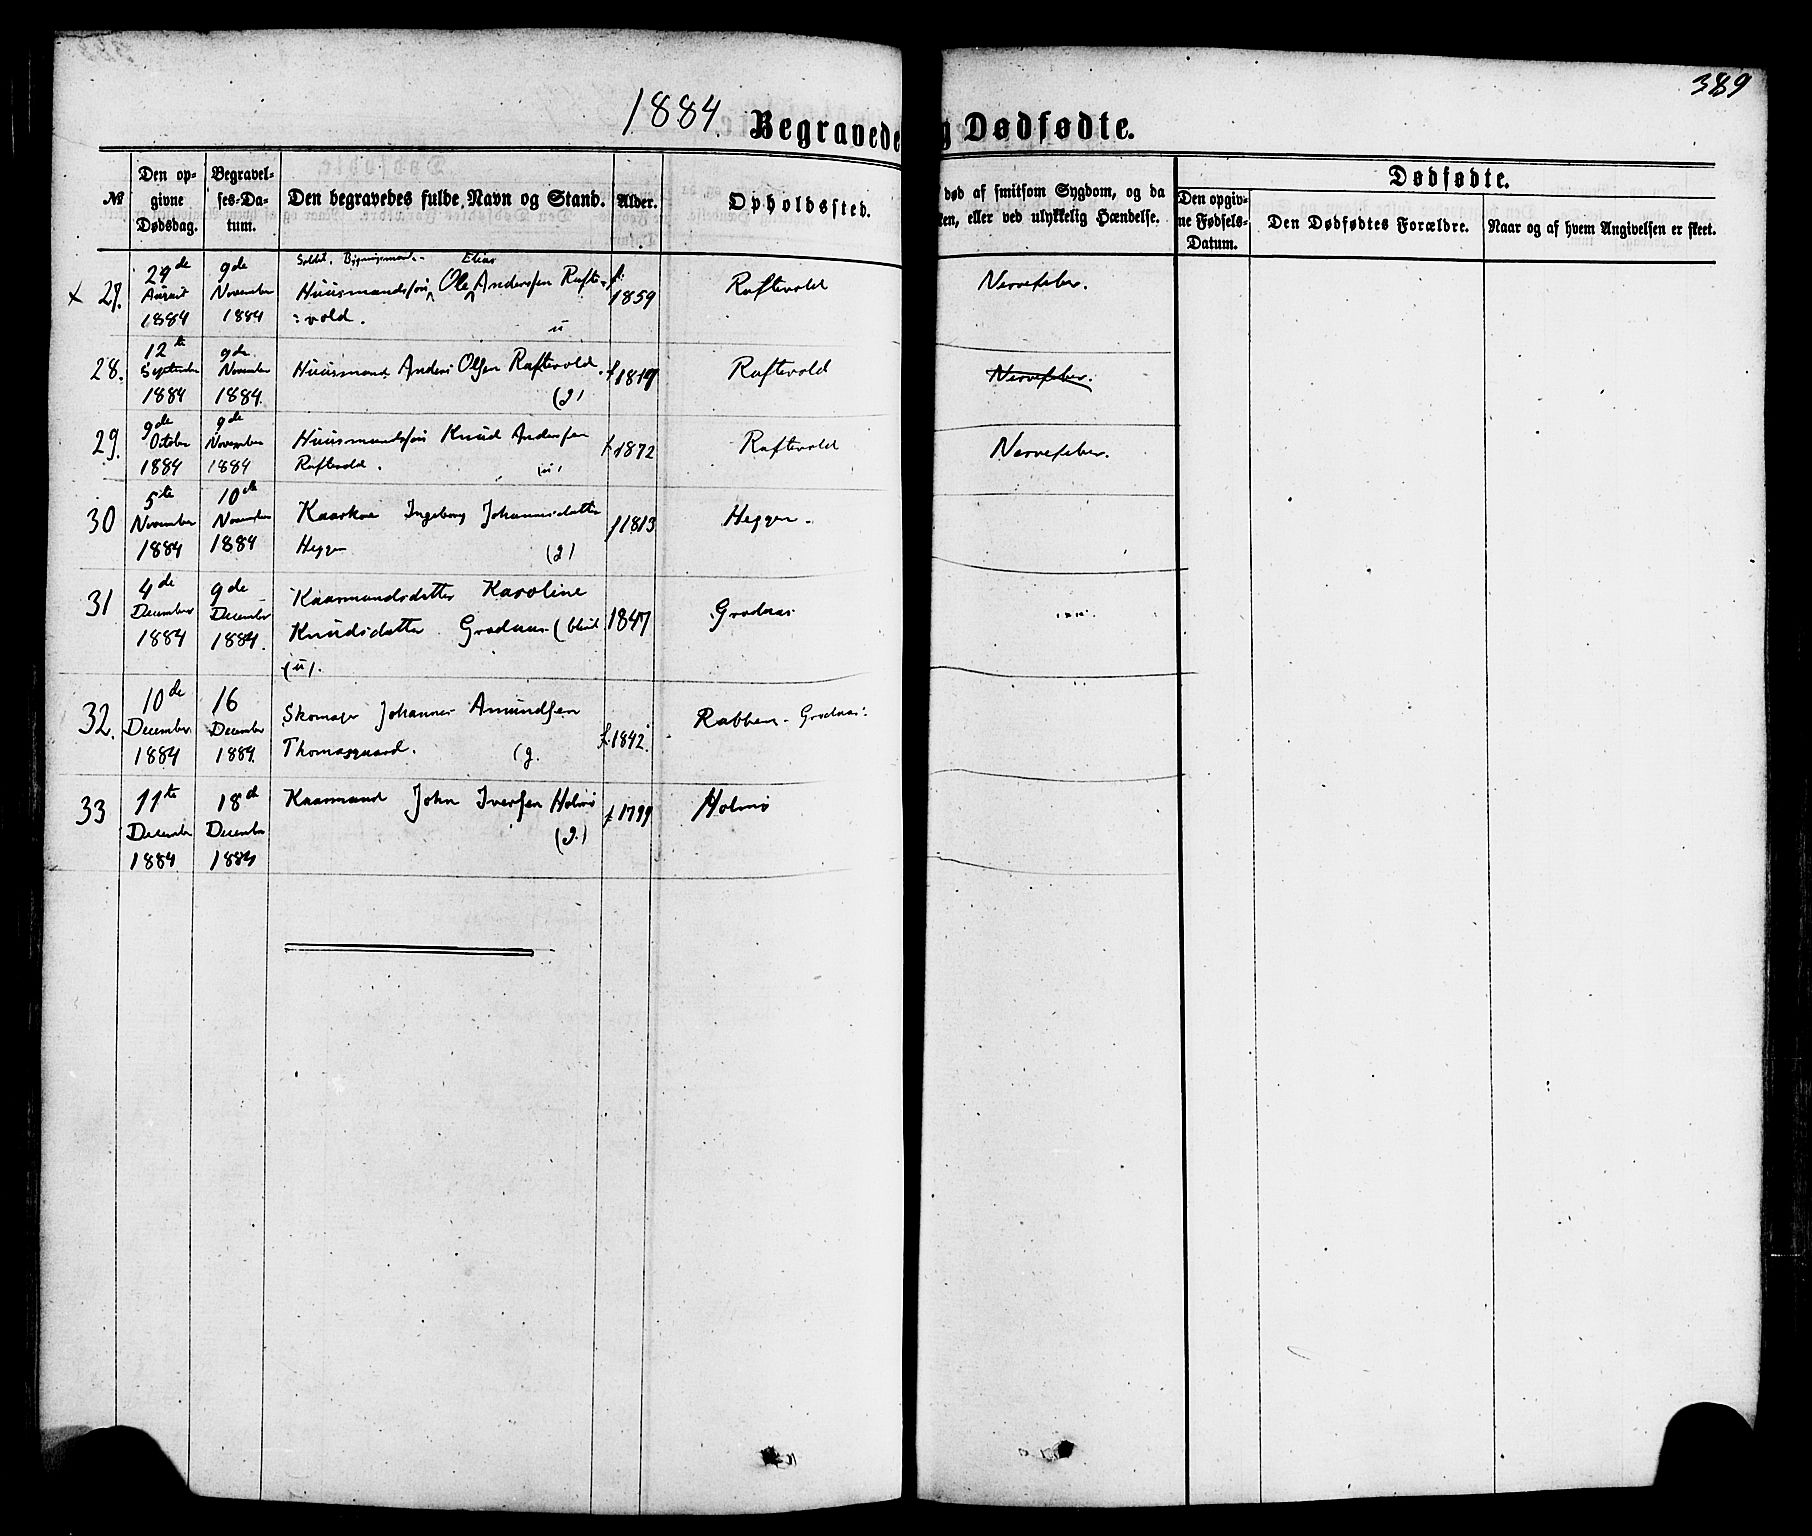 389
1884.
Begravede g Dødfødte.
№
Den op-
givne
Dødsdag.
Begravel-
ses-Da-
tum.
Den begravedes fulde Navn og Stand.
Alder.
Opholdssted.
død af smitsom Sygdom, og da
ken, eller ved ulykkelig Hændelse.
Dødfødte.
Den opgiv-
ne Fødsels-
Datum.
Den Dødfødtes Forældre.
Naar og af hvem Angivelsen er skeet.
x 27.
29de
August
1884
9de
November
1884
Soldat. Elias
Huusmandssøn Ole Anderssen Rafte-
:vold.
u
f.
1859
Raftevold
Nervefeber.
28.
12te
September
1884
9de
November
1884.
Huusmand Anders Olsen Raftevold.
(g)
f 1819
Raftevold
Nervefeber.
29.
9de
October
1884
9de
November
1884
Huusmandssøn Knud Andersen
Raftevold.
(u)
f 1872
Raftevold
Nervefeber.
30
5te
November
1884
10de
November
1884
Kaarkone Ingeborg Johannesdatter
Heggen
(g)
f 1813
Heggen.
31
4de
December
1884
9de
December
1884.
Kaarmandsdatter Karoline
Knudsdatter Grodaas (blind
(u).
1847
Grodaas
32.
10de
December
1884
16
December
1884.
Skomager Johannes Amundsen
Thomasgaard.
(g.
f. 1842.
Rabben - Grodaas.
33
11te
December
1884.
18d
December
1884
Kaarmand John Iversen Holmø
(g.)
f 1799
Holmø